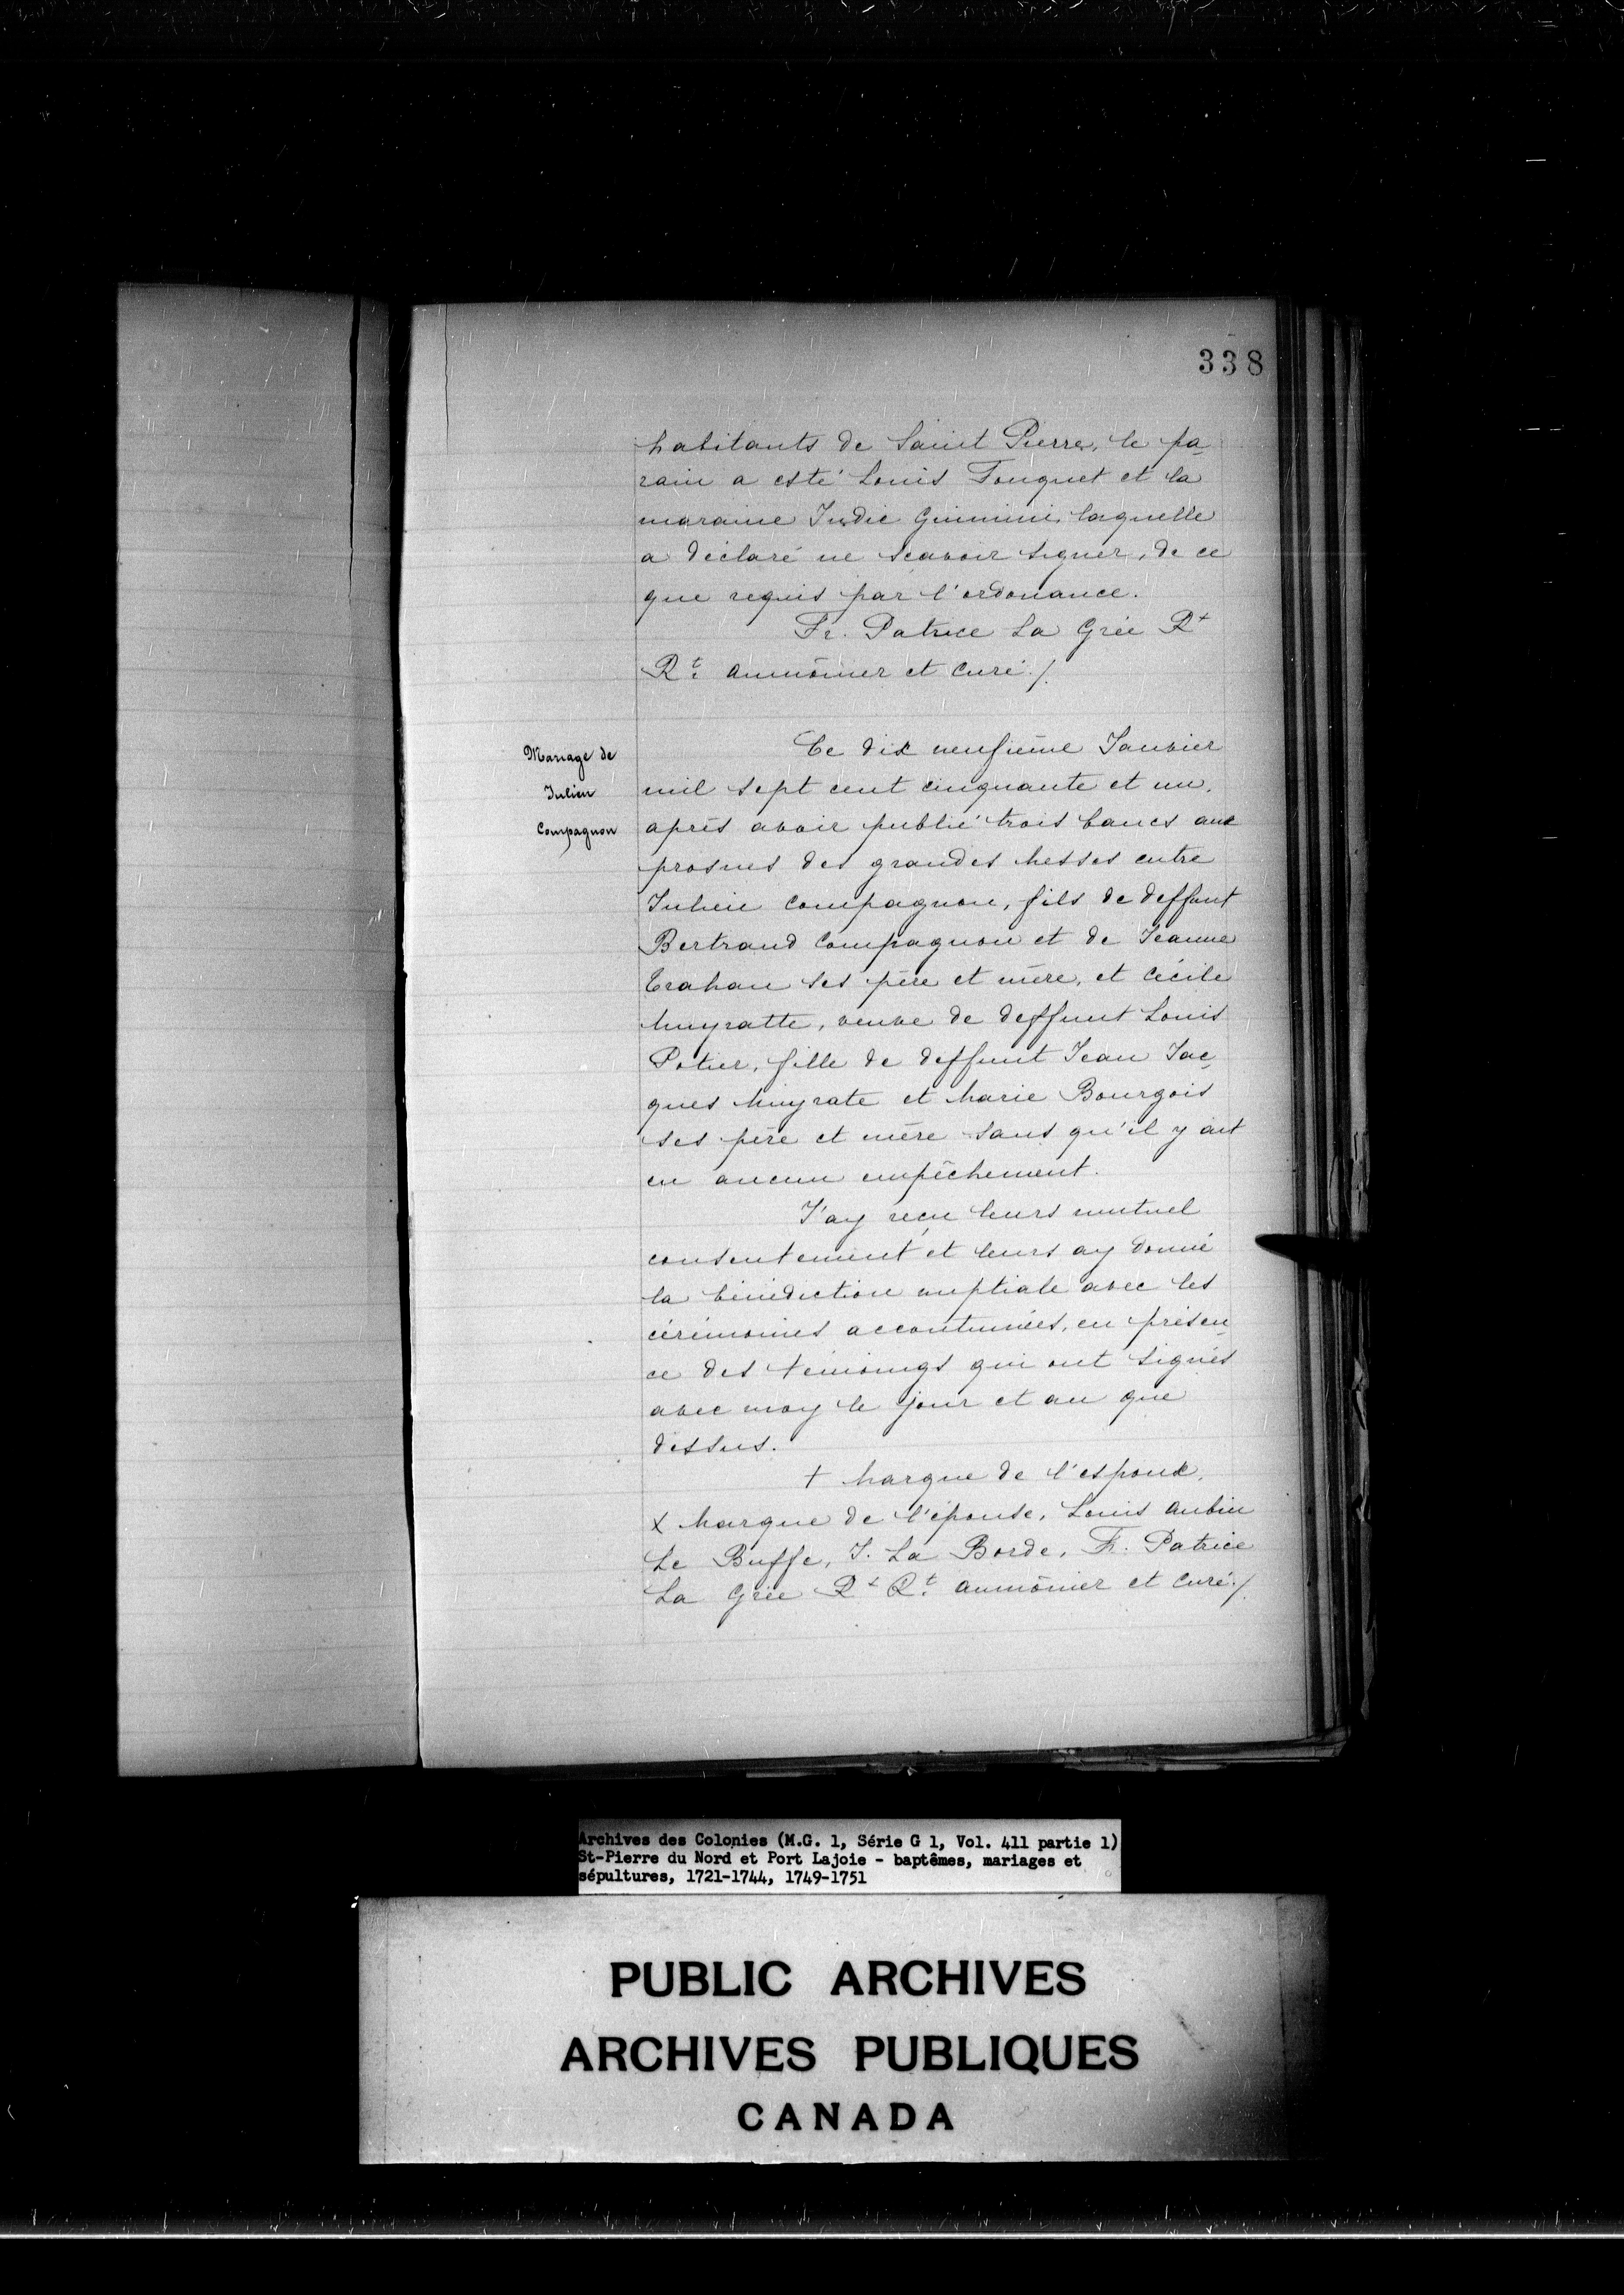 338
habitants de Saint Pierre, le pa
rain a esté Louis Fouquet et la
maraine Judic laquelle
a déclaré ne scavoir signer, de ce
que requis par l'ordonance.
Fr. Patrice La Grée Rt
Rt. aumônier et curé./.
Mariage de
Julien
Compagnon
Ce dix neufième Janvier
mil sept cent cinquante et un,
après avoir publié trois bancs aux
prosnes des grandes Messes entre
Julien Compagnon, fils de deffunt
Bertrand Compagnon et de Jeanne
Trahan ses père et mère, et Cécile
Muyratte, veuve de deffunt Louis
Potier, fille de deffunt Jean Jac
ques Muyrate et Marie Bourgois
ses père et mère sans qu'il y ait
eu aucun empêchement.
J'ay reçu leurs mutuel
consentement et leurs ay donné
la bénédiction nuptiale avec les
cérémonies accoutumées, en présen
ce des témoings qui ont signés
avec moy le jour et an que
dessus.
+ Marque de l'espoux,
X Marque de l'épouse, Louis Aubin
Le Buffe, J. La Borde, Fr. Patrice
La Grée Rt Rt. aumônier et curé./.
Archives des Colonies (M.G. 1, Série G 1, Vol. 411 partie 1)
St-Pierre du Nord et Port Lajoie - baptêmes, mariages et
sépultures, 1721-1744, 1749-1751
PUBLIC ARCHIVES
ARCHIVES PUBLIQUES
CANADA